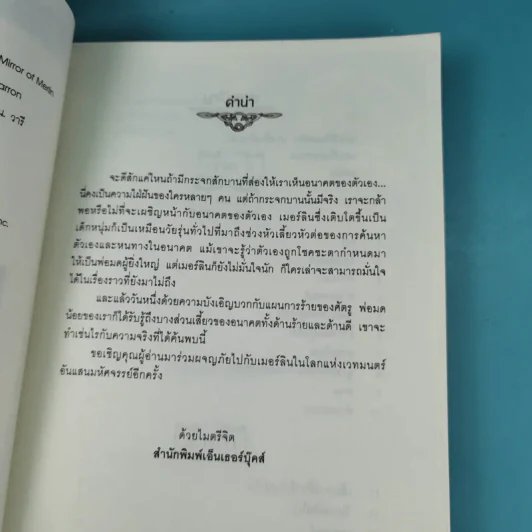 Mirror of Merlin
arron
น. วารี
nc.
คำนำ
จะดีสักแค่ไหนถ้ามีกระจกสักบานที่ส่องให้เราเห็นอนาคตของตัวเอง...
นี่คงเป็นความใฝ่ฝันของใครหลายๆ คน แต่ถ้ากระจกบานนั้นมีจริง เราจะกล้า
พอหรือไม่ที่จะเผชิญหน้ากับอนาคตของตัวเอง เมอร์ลินซึ่งเติบโตขึ้นเป็น
เด็กหนุ่มก็เป็นเหมือนวัยรุ่นทั่วไปที่มาถึงช่วงหัวเลี้ยวหัวต่อของการค้นหา
ตัวเองและหนทางในอนาคต แม้เขาจะรู้ว่าตัวเองถูกโชคชะตากำหนดมา
ให้เป็นพ่อมดผู้ยิ่งใหญ่ แต่เมอร์ลินก็ยังไม่มั่นใจนัก ก็ใครเล่าจะสามารถมั่นใจ
ได้ในเรื่องราวที่ยังมาไม่ถึง
และแล้ววันหนึ่งด้วยความบังเอิญบวกกับแผนการร้ายของศัตรู พ่อมด
น้อยของเราก็ได้รับรู้ถึงบางส่วนเสี้ยวของอนาคตทั้งด้านร้ายและด้านดี เขาจะ
ทำเช่นไรกับความจริงที่ได้ค้นพบนี้
ขอเชิญคุณผู้อ่านมาร่วมผจญภัยไปกับเมอร์ลินในโลกแห่งเวทมนตร์
อันแสนมหัศจรรย์อีกครั้ง
ด้วยไมตรีจิต
สำนักพิมพ์เอ็นเธอร์บุ๊คส์